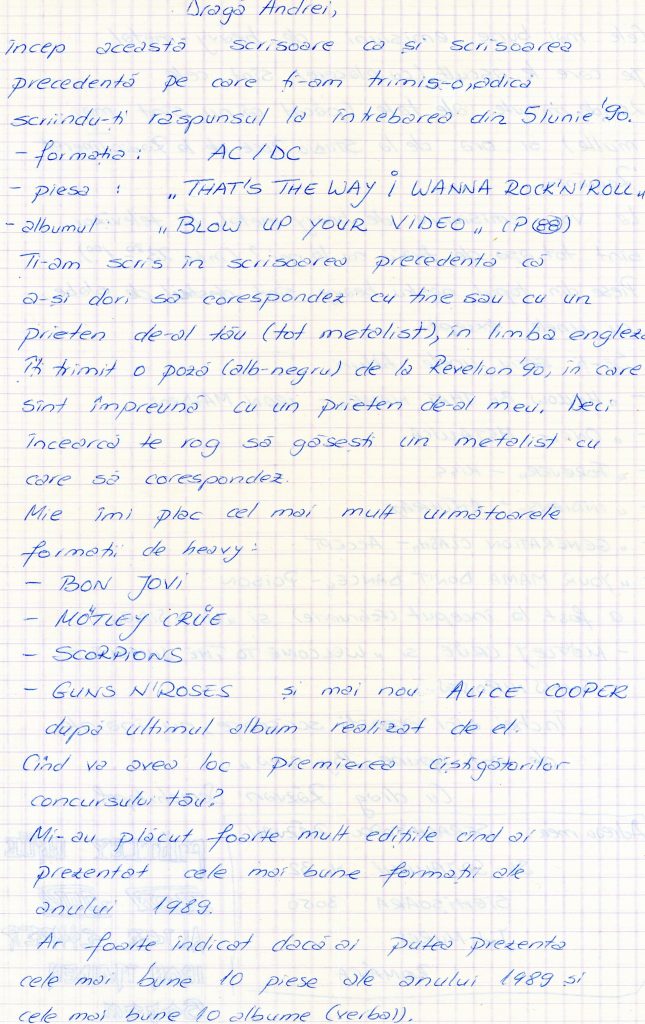 Dragă Andrei,
încep această scrisoare ca și scrisoarea
precedentă pe care ți-am trimis-o, adică
scriindu-ți răspunsul la întrebarea din 5 Iunie '90.
- formația : AC/DC
- piesa : „THAT'S THE WAY I WANNA ROCK'N'ROLL„
- albumul „BLOW UP YOUR VIDEO„ (P 88)
Ți-am scris în scrisoarea precedentă că
a-și dori să corespondez cu tine sau cu un
prieten de-al tău (tot metalist), în limba engleză
Îți trimit o poză (alb-negru) de la Revelion '90, în care
sînt împreună cu un prieten de-al meu. Deci
încearcă te rog să găsești un metalist cu
care să corespondez.
Mie îmi plac cel mai mult următoarele
formații de heavy:
- BON JOVI
- MÖTLEY CRÜE
- SCORPIONS
- GUNS N'ROSES și mai nou ALICE COOPER
după ultimul album realizat de el.
Cînd va avea loc premierea cîștigătorilor
concursului tău?
Mi-au plăcut foarte mult edițiile cînd ai
prezentat cele mai bune formații ale
anului 1989.
Ar foarte indicat dacă ai putea prezenta
cele mai bune 10 piese ale anului 1989 și
cele mai bune 10 albume (verbal).